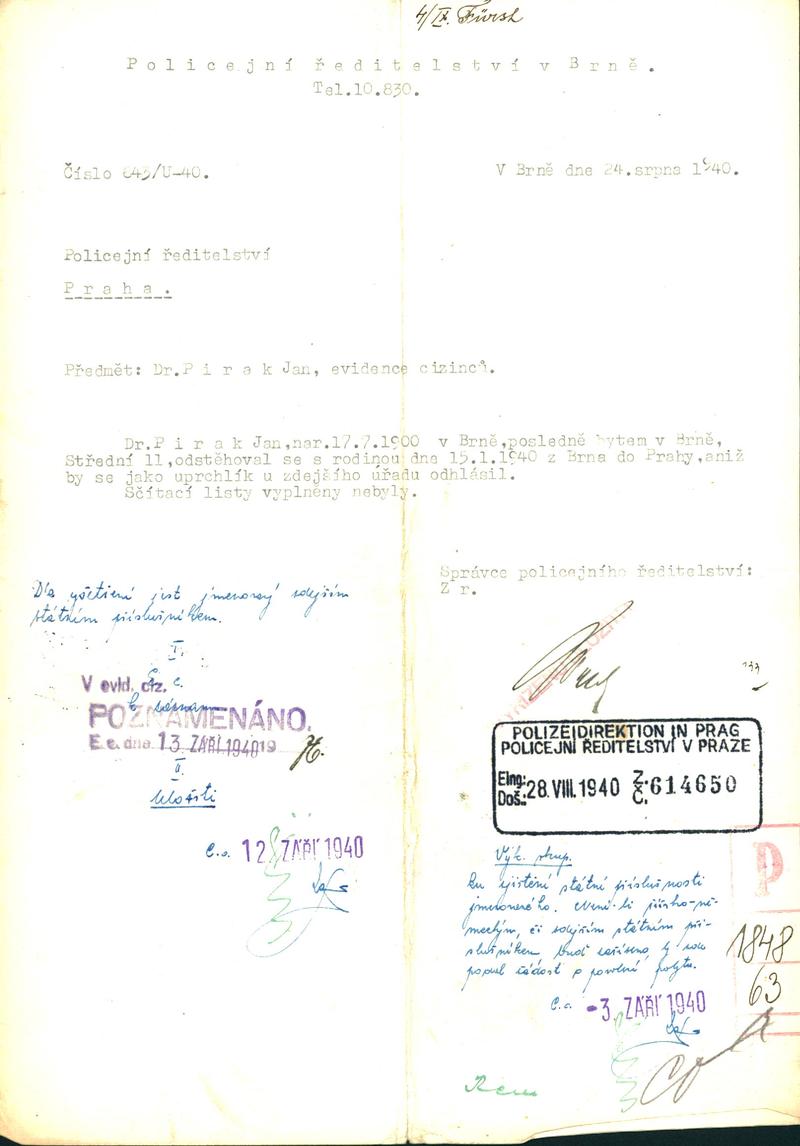 4/IX. Fürst
Policejní ředitelství v Brně.
Tel.10.830.
Číslo 643/U-40.
V Brně dne 24.srpna 1940.
Policejní ředitelství
Praha.
Předmět: Dr.P i r a k Jan, evidence cizinců.
Dr.P i r a k Jan,nar.17.7.1900 v Brně,posledně bytem v Brně,
Střední 11,odstěhoval se s rodinou dne 15.1.1940 z Brna do Prahy,aniž
by se jako uprchlík u zdejšího úřadu odhlásil.
Sčítací listy vyplněny nebyly.
Správce policejního ředitelství:
Z r.
Dle jest jmenovaný zdejším
státním příslušníkem.
I.
V evid. ciz.
k seznam
POZNAMENÁNO.
E. c. dne 13. ZÁŘÍ 1940 19
II.
uložiti
C.o. 12. ZÁŘÍ 1940
POLIZEIDIREKTION IN PRAG
POLICEJNÍ ŘEDITELSTVÍ V PRAZE
Eing.: Doš.: 28.VIII.1940 Z. Č. 614650
Výk. skup.
ku zjištění státní příslušnosti
jmenovaného. Není-li přísluš-ně-
meckým, či zdejším státním pří-
slušníkem, buď zařízeno, by zde
podal žádost o povolení pobytu.
C.o. -3. ZÁŘÍ 1940
P
1848
63